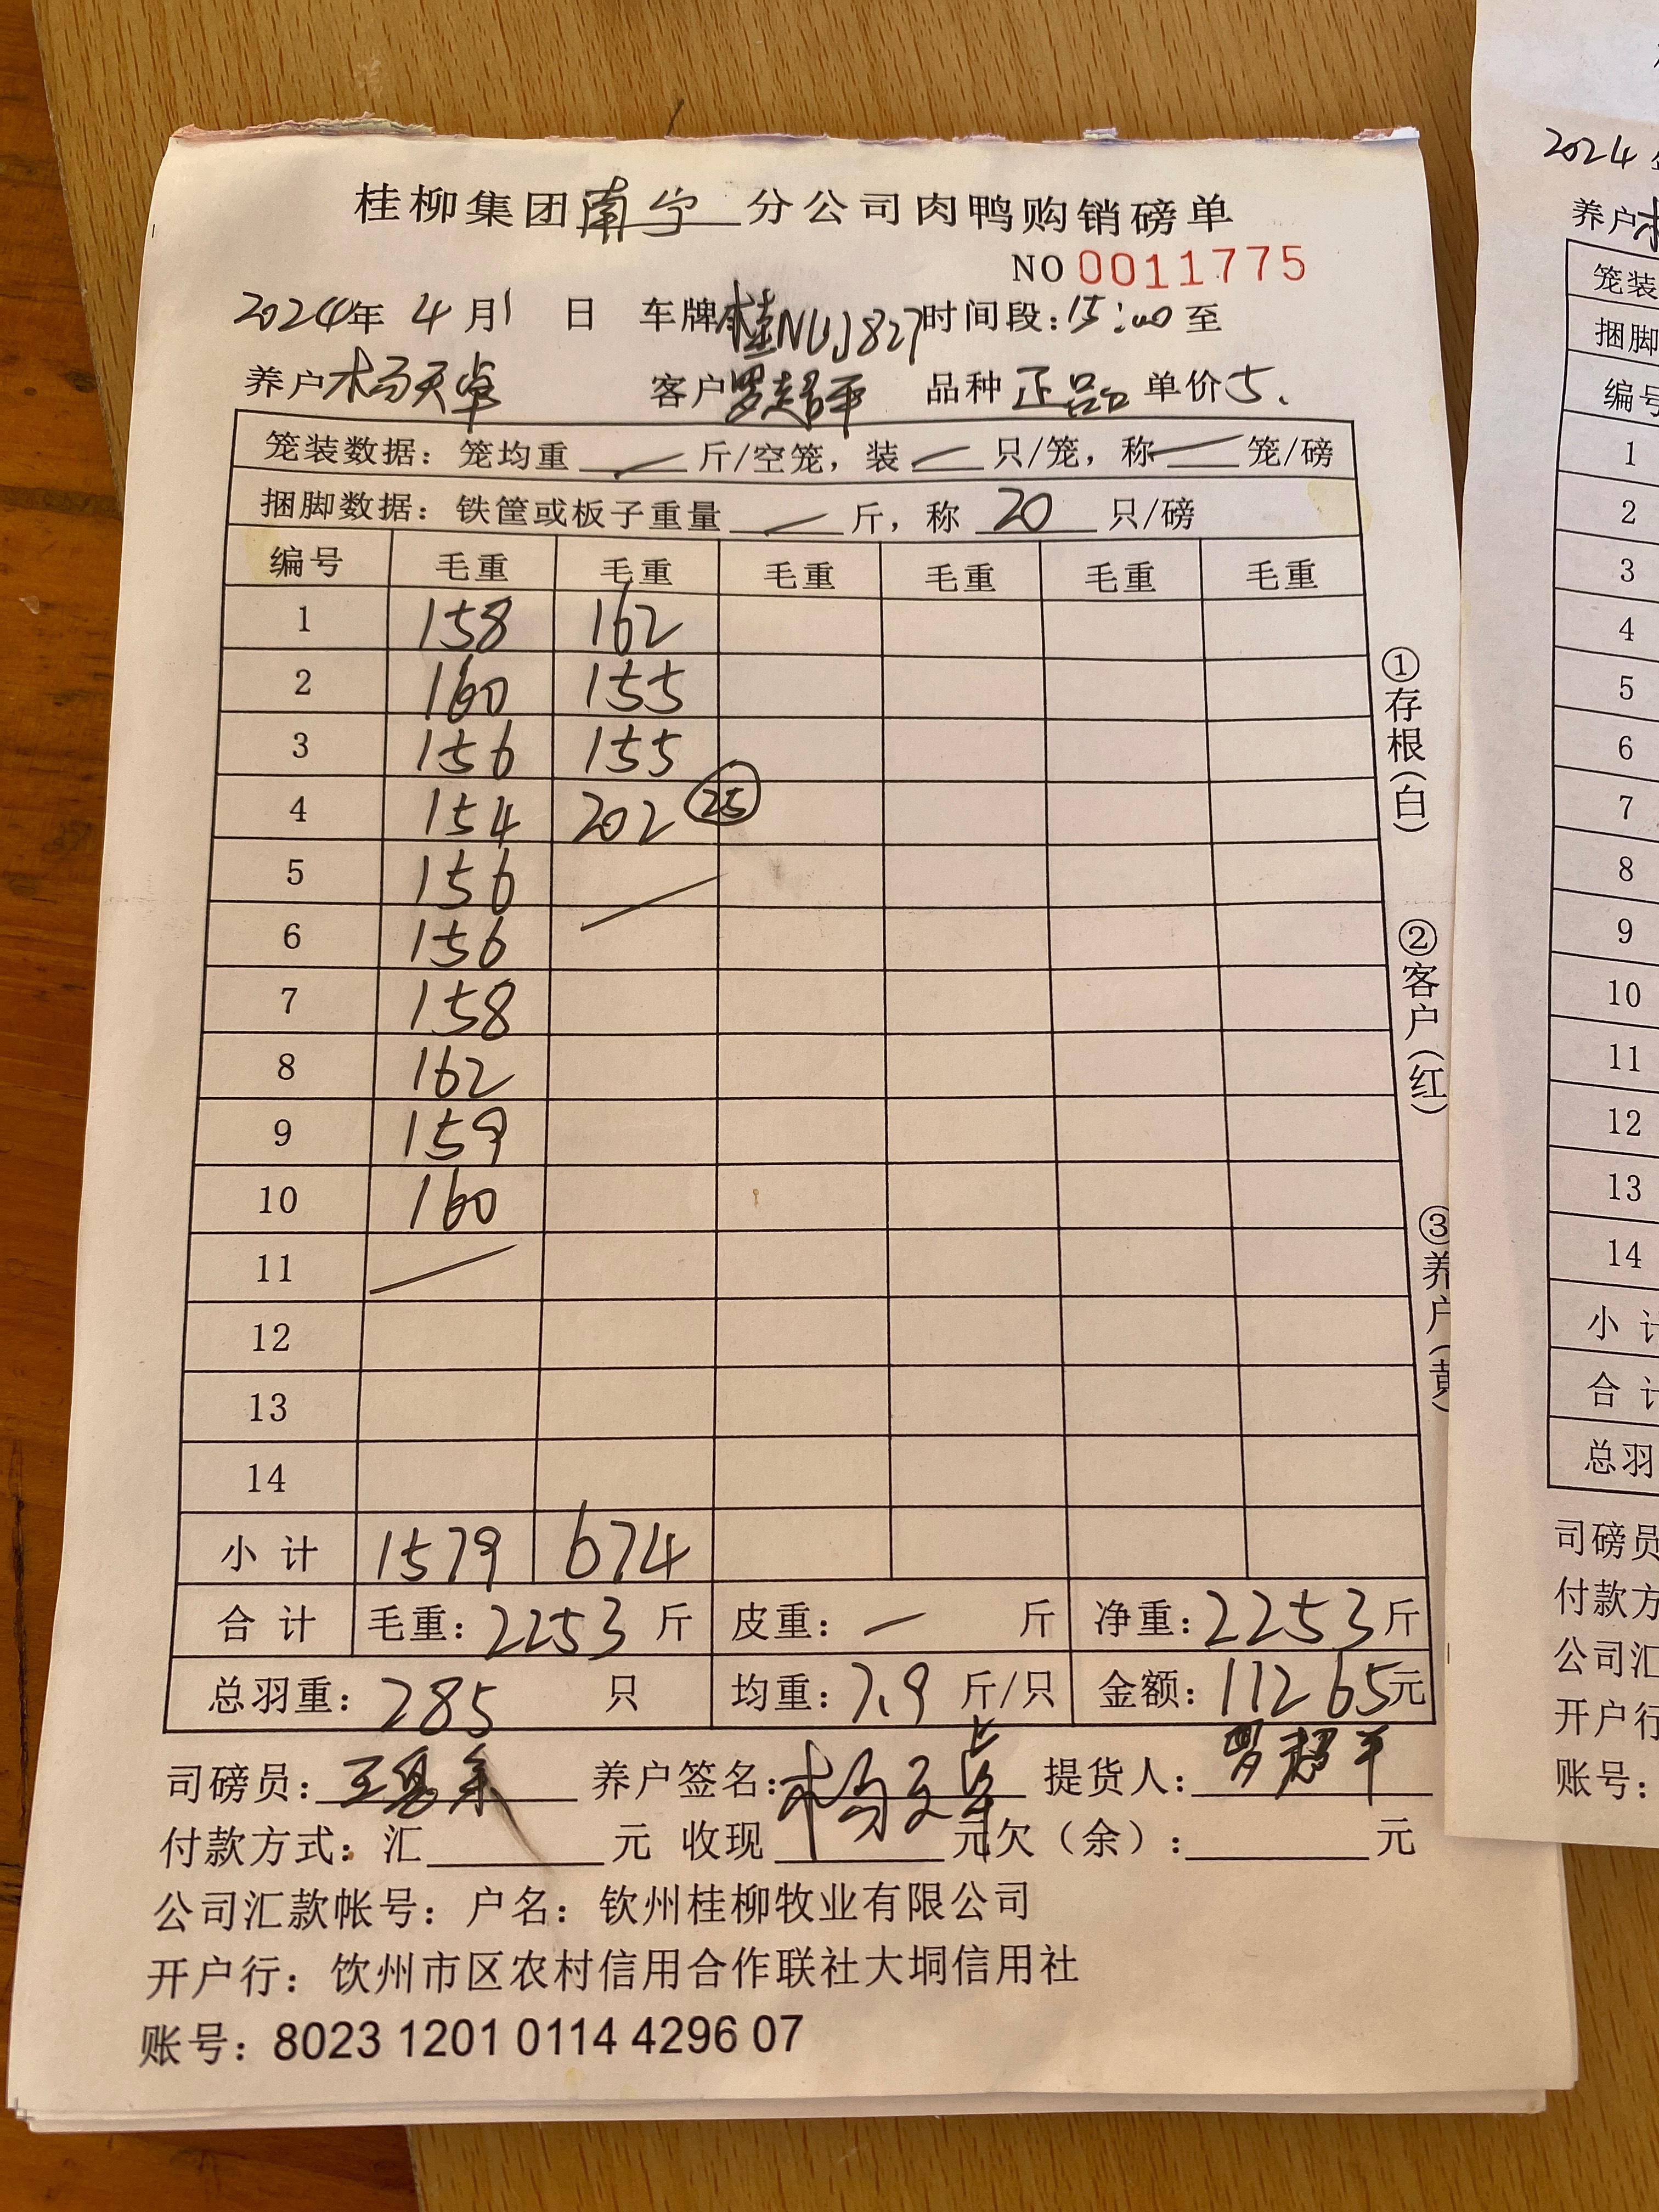 桂柳集团南宁分公司肉鸭购销磅单
NO 0011775
2024年 4月1日 车牌桂NUJ827时间段:15:00至
养户杨天卓 客户罗超平 品种正品 单价5.
笼装数据：笼均重 — 斤/空笼，装 — 只/笼，称 — 笼/磅
捆脚数据：铁筐或板子重量 — 斤，称 20 只/磅
编号 毛重 毛重 毛重 毛重 毛重 毛重
1 158 162
2 160 155
3 156 155
4 154 202 25
5 156
6 156
7 158
8 162
9 159
10 160
11
12
13
14
小计 1579 674
合计 毛重：2253斤 皮重：— 斤 净重：2253斤
总羽重：285 只 均重：7.9 斤/只 金额：11265元
司磅员： 养户签名: 杨天卓 提货人：罗超平
付款方式：汇 元 收现 元欠（余）： 元
公司汇款帐号：户名：钦州桂柳牧业有限公司
开户行：钦州市区农村信用合作联社大垌信用社
账号：8023 1201 0114 4296 07
①存根(白)
②客户(红)
③养户(黄)
2024
养户
笼装
捆脚
编号
1
2
3
4
5
6
7
8
9
10
11
12
13
14
小计
合计
总羽
司磅员
付款方
公司汇
开户行
账号：